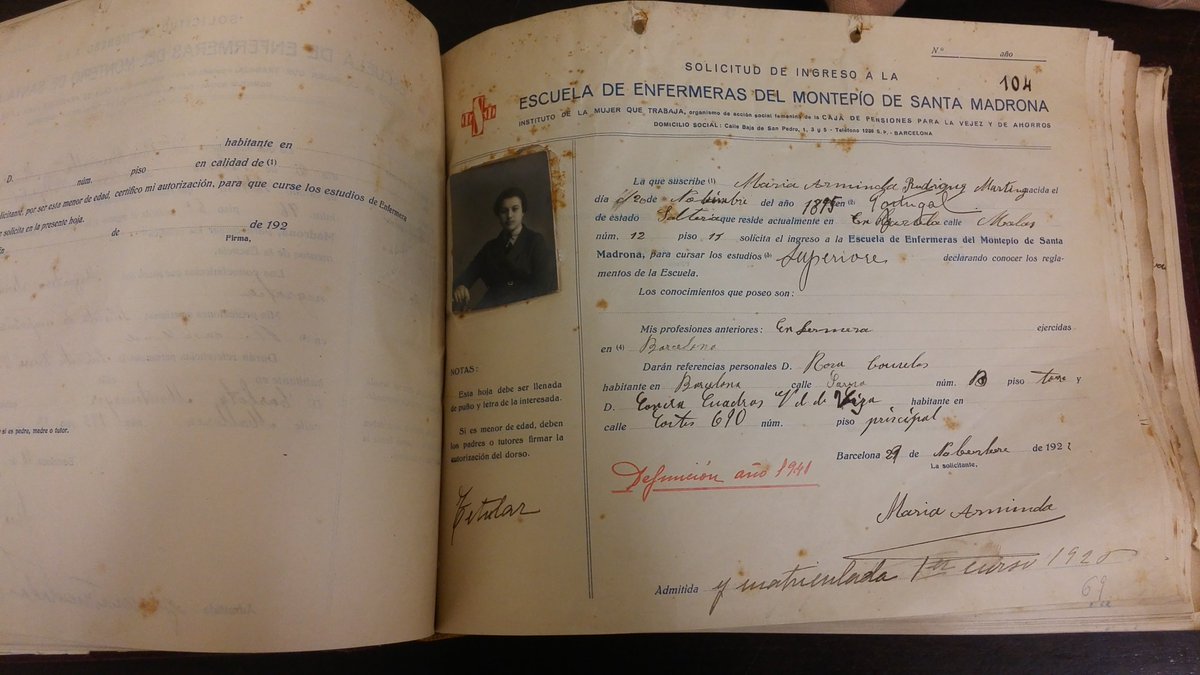 habitante en
D.
núm. piso en calidad de (1)
solicitante, por ser esta menor de edad, certifico mi autorización, para que curse los estudios de Enfermera
se solicita en la presente hoja.
de de 192
Firma,
si es padre, madre o tutor.
Nº año
104
SOLICITUD DE INGRESO A LA
ESCUELA DE ENFERMERAS DEL MONTEPÍO DE SANTA MADRONA
INSTITUTO DE LA MUJER QUE TRABAJA, organismo de acción social femenina de la CAJA DE PENSIONES PARA LA VEJEZ Y DE AHORROS
DOMICILIO SOCIAL: Calle Baja de San Pedro, 1, 3 y 5 - Teléfono 1226 S. P. - BARCELONA
La que suscribe (1) Maria Arminda Rodriguez Martin nacida el
día 20 de Noviembre del año 1895 en (2) Portugal
de estado Soltera que reside actualmente en calle
núm. 12 piso solicita el ingreso a la Escuela de Enfermeras del Montepío de Santa
Madrona, para cursar los estudios (3) Superiores declarando conocer los regla-
mentos de la Escuela.
Los conocimientos que poseo son:
Mis profesiones anteriores: Enfermera ejercidas
en (4) Barcelona
Darán referencias personales D. Rosa
habitante en Barcelona calle núm. piso torre y
D. Concha Cuadras Vd. de habitante en
calle Cortes 690 núm. piso principal
Barcelona 29 de Nobembre de 192
La solicitante,
Defunción año 1941
Maria Arminda
Admitida y matriculada 1er curso 1920
69
NOTAS:
Esta hoja debe ser llenada
de puño y letra de la interesada.
Si es menor de edad, deben
los padres o tutores firmar la
autorización del dorso.
Titular